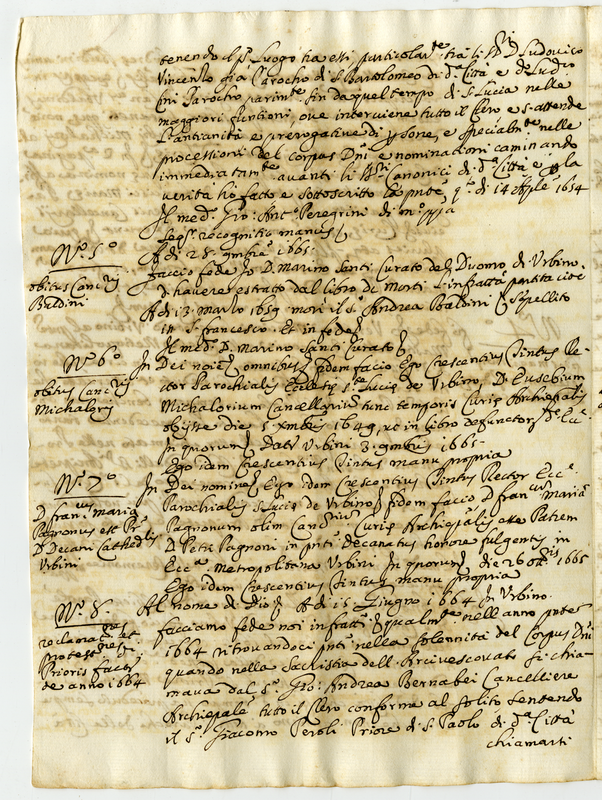 tenendo il p.º Luogo tra essi particolar.te tra li SS.ri D. Ludovico
Vincenzo già Parocho di S. Bartolomeo di d.ª Città e
Parocho parim.te fin da quel tempo di S. Lucia nelle
maggiori funtioni, ove interviene tutto il Clero e s'attende
l'antianità e prerogative di psone, e specialm.te nelle
processioni del Corpus Dñi e nominationi caminando
immediatam.te avanti li Canonici di d.ª Città e p la
verità hò fatto e sottoscritto la pñte q.º di 14 Aple 1654
Il med.º Gio: Ant.º Peregrini di m.º ppª
seq.r recognitio manus
N.º 5.º
obitus Canc.rii
Baldini
A di 28. 9mbre 1665.
faccio fede Io D. Marino Santi Curato del Duomo di Urbino
d'havere estratto dal libro di Morti l'infratta partita cioè
A di 13. Marzo 1659 morì il s.r Andrea Baldini Sepellito
in S. francesco. Et in fede
Il med.º D. Marino Santi Curato
N.º 6.º
obitus Canc.rii
Michalorij
In Dei noie omnibus fidem facio Ego Crescentius Tintus Re-
ctor Parochialis Eccl.ę S.tę Lucię de Urbino D. Eusebium
Michalorium Cancellarium tunc temporis Curię Archiepalis
obijsse die 5 xmbris 1649, ut in libro defunctor. d.ę Ecc.ę
In quorum Dat. Urbini 3. 9mbris 1665.
Ego idem Crescentius Tintus manu propria
N.º 7.º
D. fran.cus Maria
Pagnonus est Pr.
D. Decani Cathed.lis
Urbini
In Dei nomine Ego idem Crescentius Tintus Rector Ecc.ę
Parochialis S. Lucię de Urbino fidem facio D. fran.cum Mariã
Pagnonum olim Canc.rium Curię Archiepalis esse Patrem
D. Petri Pagnoni in pñti decanatus honore fulgentis in
Ecc.ª Metropolitana Urbini In quorum die 26 1665
Ego idem Crescentius Tintus manu propria
N.º 8.
reclamat.nes et
protest.nes
Prioris factę
de anno 1664
Al nome di Dio A di 15 Giugno 1664 In Urbino.
facciamo fede noi infratti qualm.te nell'anno pñte
1664 ritrovandoci pñti nella solennità del Corpus Dñi
quando nella Sacristia dell'Arcivescovato si chia-
mava dal s.r Gio: Andrea Bernabei Cancelliere
Archiepale tutto il Clero conforme al solito sentendo
il s.r Giacomo Peroli Priore di S. Paolo di d.ª Città
chiamarsi